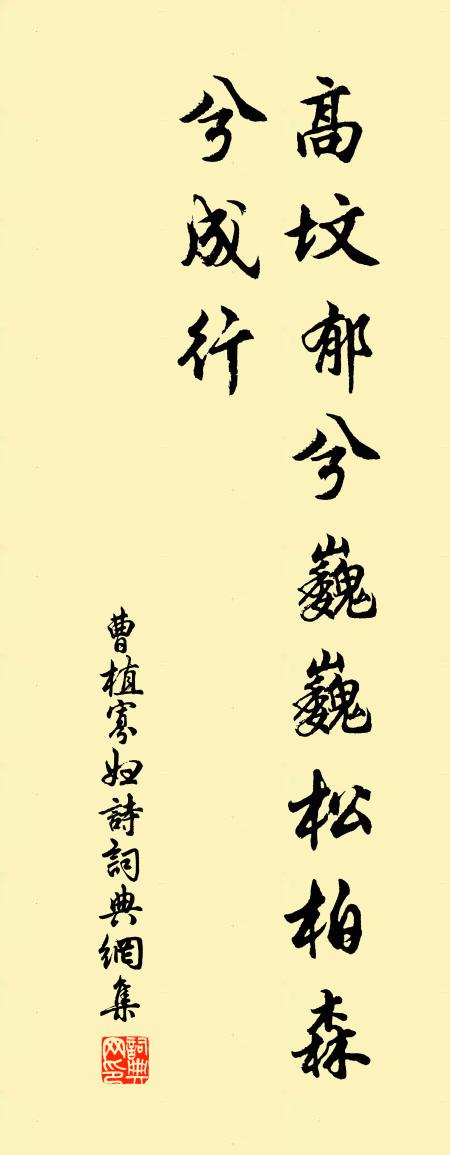 高坟郁兮巍巍松柏森
兮成行
曹植寡妇詩詞典網集
詞典网印